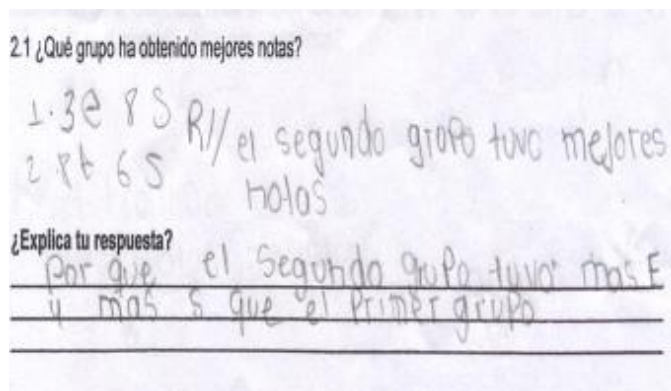 2.1 ¿Qué grupo ha obtenido mejores notas?
1. 3e 8 S R// el segundo grupo tuvo mejores
2 8t 6 S notas
¿Explica tu respuesta?
Por que el segundo grupo tuvo mas E
y mas s que el Primer grupo